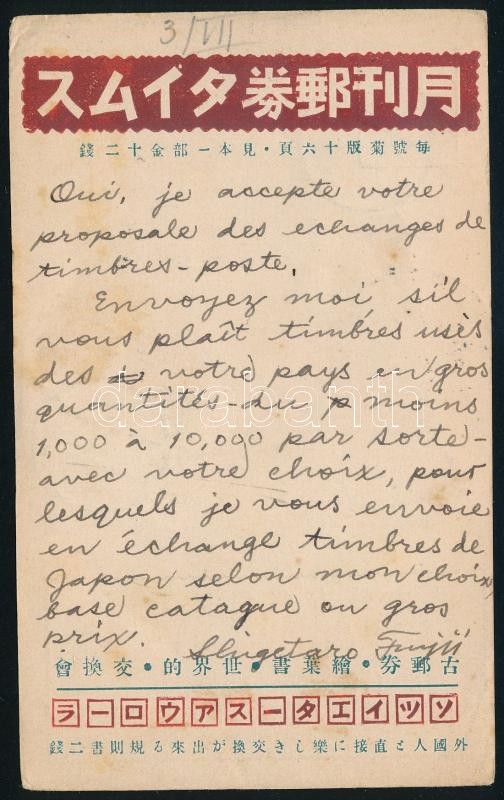 3/VII
月刊郵券タイムス
毎號菊版十六頁・見本一部金十二錢
Oui, je accepte votre
proposale des echanges de
timbres-poste.
Envoyez moi s'il
vous plaît timbres usès
des votre pays en gros
quantités - du moins
1,000 à 10,000 par sorte -
avec votre choix, pour
lesquels je vous envoie
en échange timbres de
Japon selon mon choix,
base catague ou gros
prix. Shigetaro Fujii
古郵券・繪葉書・世界的・交換會
ソツイエタースアウローラ
外國人と直接に樂しき交換が出來る規則書二錢
darabanth